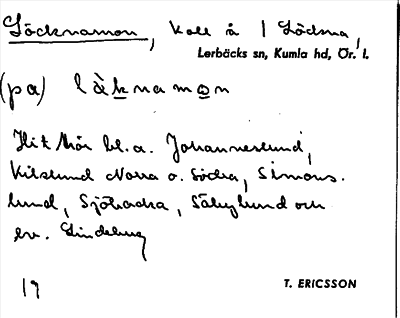 Söcknamon, koll å l Lödsma,
Lerbäcks sn, Kumla hd, Ör. l.
(pa) làknamon
Hit hör bl.a. Johanneslund,
Kilslund Norra o. Södra, Simons-
lund, Sjöhadra, Säbylund och
ev. Lindeberg
19
T. ERICSSON